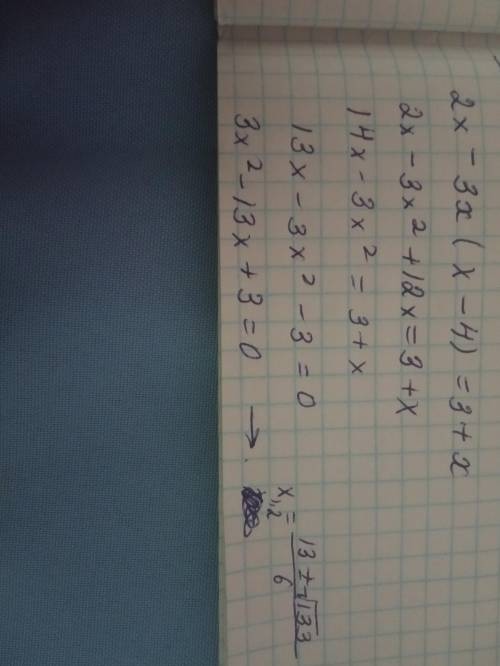 2x - 3x (x - 4) = 3 + x
2x - 3x² + 12x = 3 + x
14x - 3x² = 3 + x
13x - 3x² - 3 = 0
3x² - 13x + 3 = 0 → x₁,₂ = (13 ± √133)/6